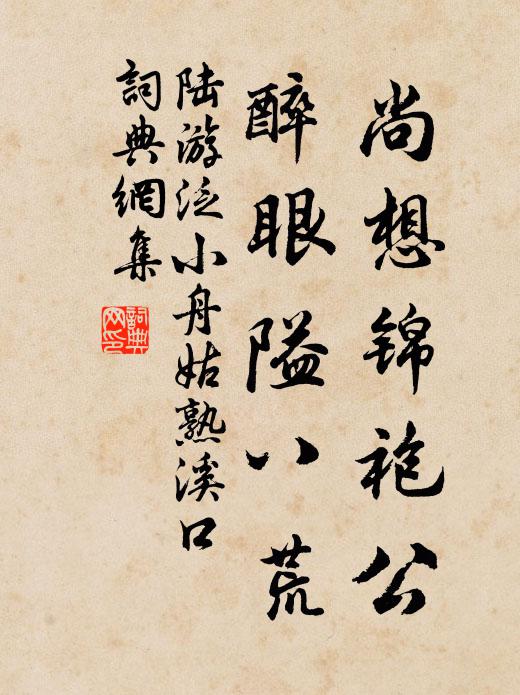 尚想锦袍公
醉眼隘八荒
陆游泛小舟姑熟溪口
词典網集
詞典網印